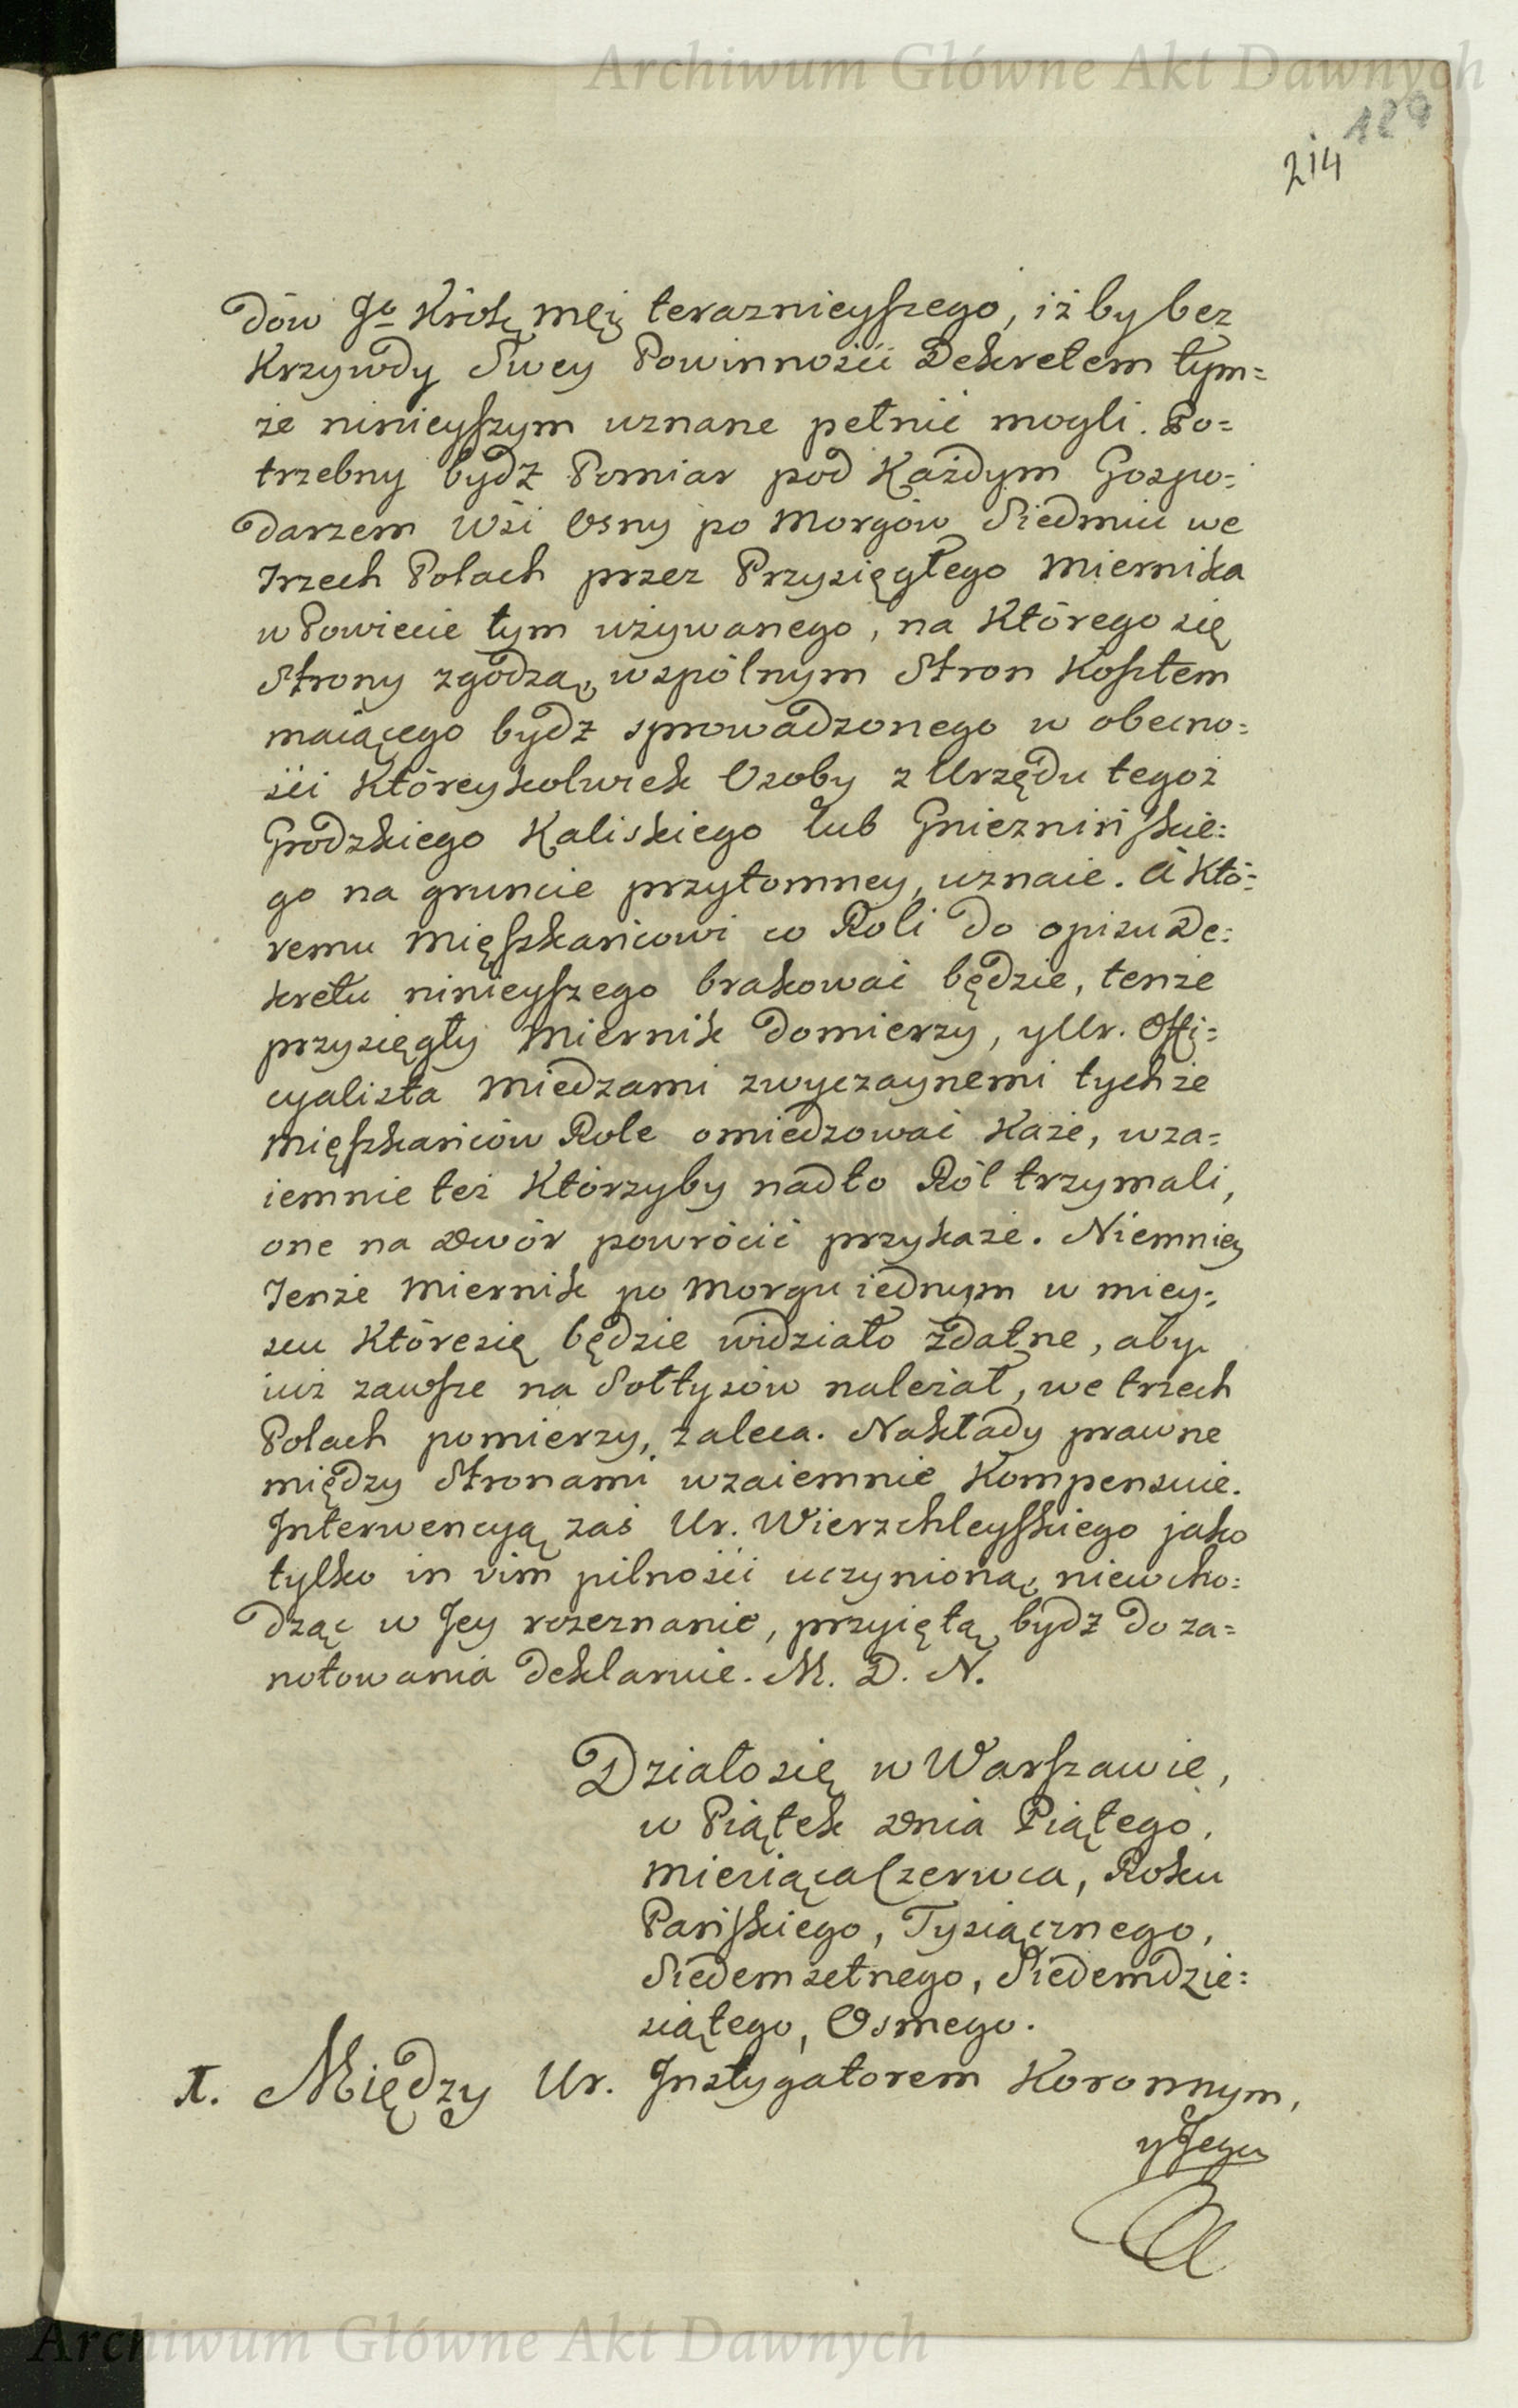 Archiwum Główne Akt Dawnych
129
214
dów Jo Królę Mći teraznieyszego, iżby bez
Krzywdy Swey Powinności Dekretem tym=
że ninieyszym uznane pełnić mogli. Po=
trzebny bydź Pomiar pod Każdym Gospo=
darzem Wsi Osny po Morgów Siedmiu we
Trzech Polach przez Przysięgłego Miernika
w Powiecie tym używanego, na Którego się
Strony zgodzą, wspólnym Stron Kosztem
maiącego bydź sprowadzonego w obecno=
ści Któreykolwiek Osoby z Urzędu tegoż
Grodzkiego Kaliskiego lub Gnieznińskie=
go na gruncie przytomney, uznaie. A Któ=
remu Mięszkańcowi co Roli do opisu De=
kretu ninieyszego brakować będzie, tenże
przysięgły Miernik domierzy, y Ur. Offi=
cyalista Miedzami zwyczaynemi tychże
Mięszkańców Role omiedzować Każe, wza=
iemnie też Którzyby nadto Ról trzymali,
one na Dwór powrócić przykaże. Niemniey
Tenże Miernik po Morgu iednym w miey=
scu Które się będzie widziało zdatne, aby
iuż zawsze na Sołtysów należał, we trzech
Polach pomierzy, zaleca. Nakłady prawne
między Stronami wzaiemnie Kompensuie.
Interwencyą zaś Ur. Wierzchleyskiego jako
tylko in vim pilności uczynioną, niewcho=
dząc w Jey rozeznanie, przyiętą bydź do za=
notowania deklaruie. M. D. N.
Działo się w Warszawie,
w Piątek Dnia Piątego,
Miesiąca Czerwca, Roku
Pańskiego, Tysiącznego,
Siedemsetnego, Siedemdzie=
siątego, Osmego.
I. Między Ur. Instygatorem Koronnym,
y Jego
Archiwum Główne Akt Dawnych